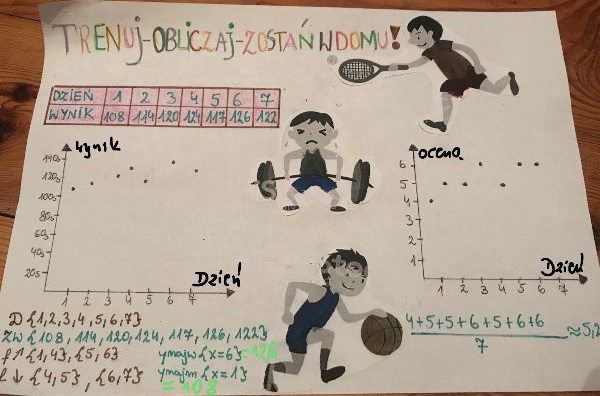 TRENUJ-OBLICZAJ-ZOSTAŃ W DOMU!
DZIEŃ 1 2 3 4 5 6 7
WYNIK 108 114 120 124 117 126 122
wynik
140s
120s
100s
80s
60s
40s
20s
1 2 3 4 5 6 7
Dzień
ocena
6
5
4
3
2
1
1 2 3 4 5 6 7
Dzień
D {1,2,3,4,5,6,7}
ZW {108, 114, 120, 124, 117, 126, 122}
f↑ {1,4}, {5,6}
f↓ {4,5}, {6,7}
ynajw {x=6} = 126
ynajm {x=1}
= 108
4+5+5+6+5+6+6
7
≈5,2